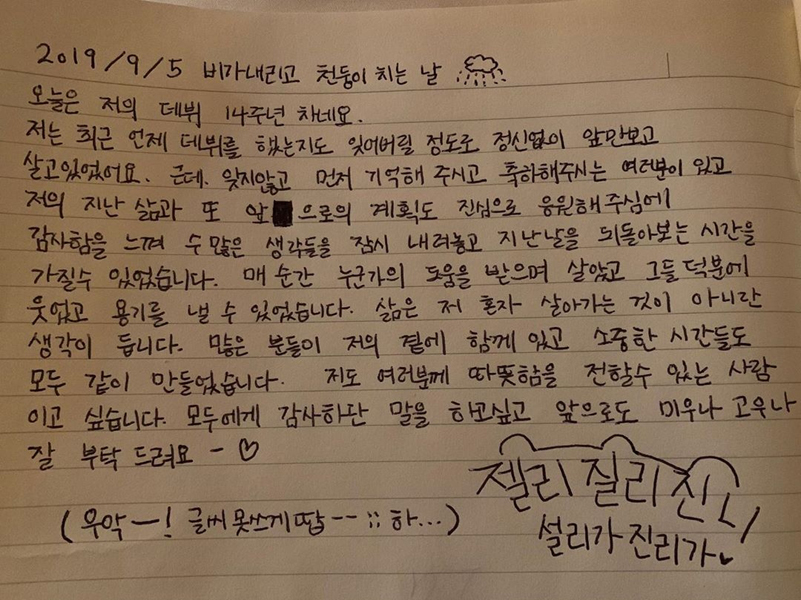 2019/9/5 비가내리고 천둥이 치는 날
오늘은 저의 데뷔 14주년 차네요.
저는 최근 언제 데뷔를 했는지도 잊어버릴 정도로 정신없이 앞만보고
살고있었어요. 근데. 잊지않고 먼저 기억해 주시고 축하해주시는 여러분이 있고
저의 지난 삶과 또 앞으로의 계획도 진심으로 응원해 주심에
감사함을 느껴 수많은 생각들을 잠시 내려놓고 지난날을 뒤돌아보는 시간을
가질수 있었습니다. 매 순간 누군가의 도움을 받으며 살았고 그들 덕분에
웃었고 용기를 낼 수 있었습니다. 삶은 저 혼자 살아가는 것이 아니란
생각이 듭니다. 많은 분들이 저의 곁에 함께 있고 소중한 시간들도
모두 같이 만들었습니다. 저도 여러분께 따뜻함을 전할수 있는 사람
이고 싶습니다. 모두에게 감사하단 말을 하고싶고 앞으로도 미우나 고우나
잘 부탁 드려요 - ♡
젤리 질리
(우악ㅡ! 글씨 못쓰게땁--;; 하...)
설리가 진리가